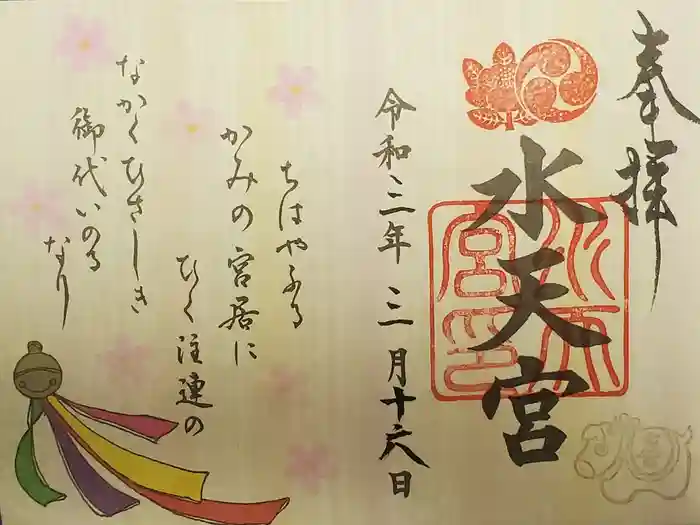 奉拝
水天宮
令和三年三月十六日
ちはやふる
かみの宮居に
ひく注連の
なかくひさしき
御代いのる
なり